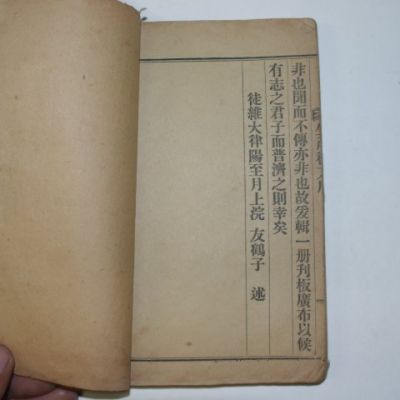 非也聞而不傳亦非也故爰輯一册刊板廣布以俟
有志之君子而普濟之則幸矣
徒維大律陽至月上浣 友鶴子 述